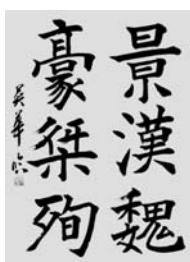 景漢魏
豪桀殉
吴華